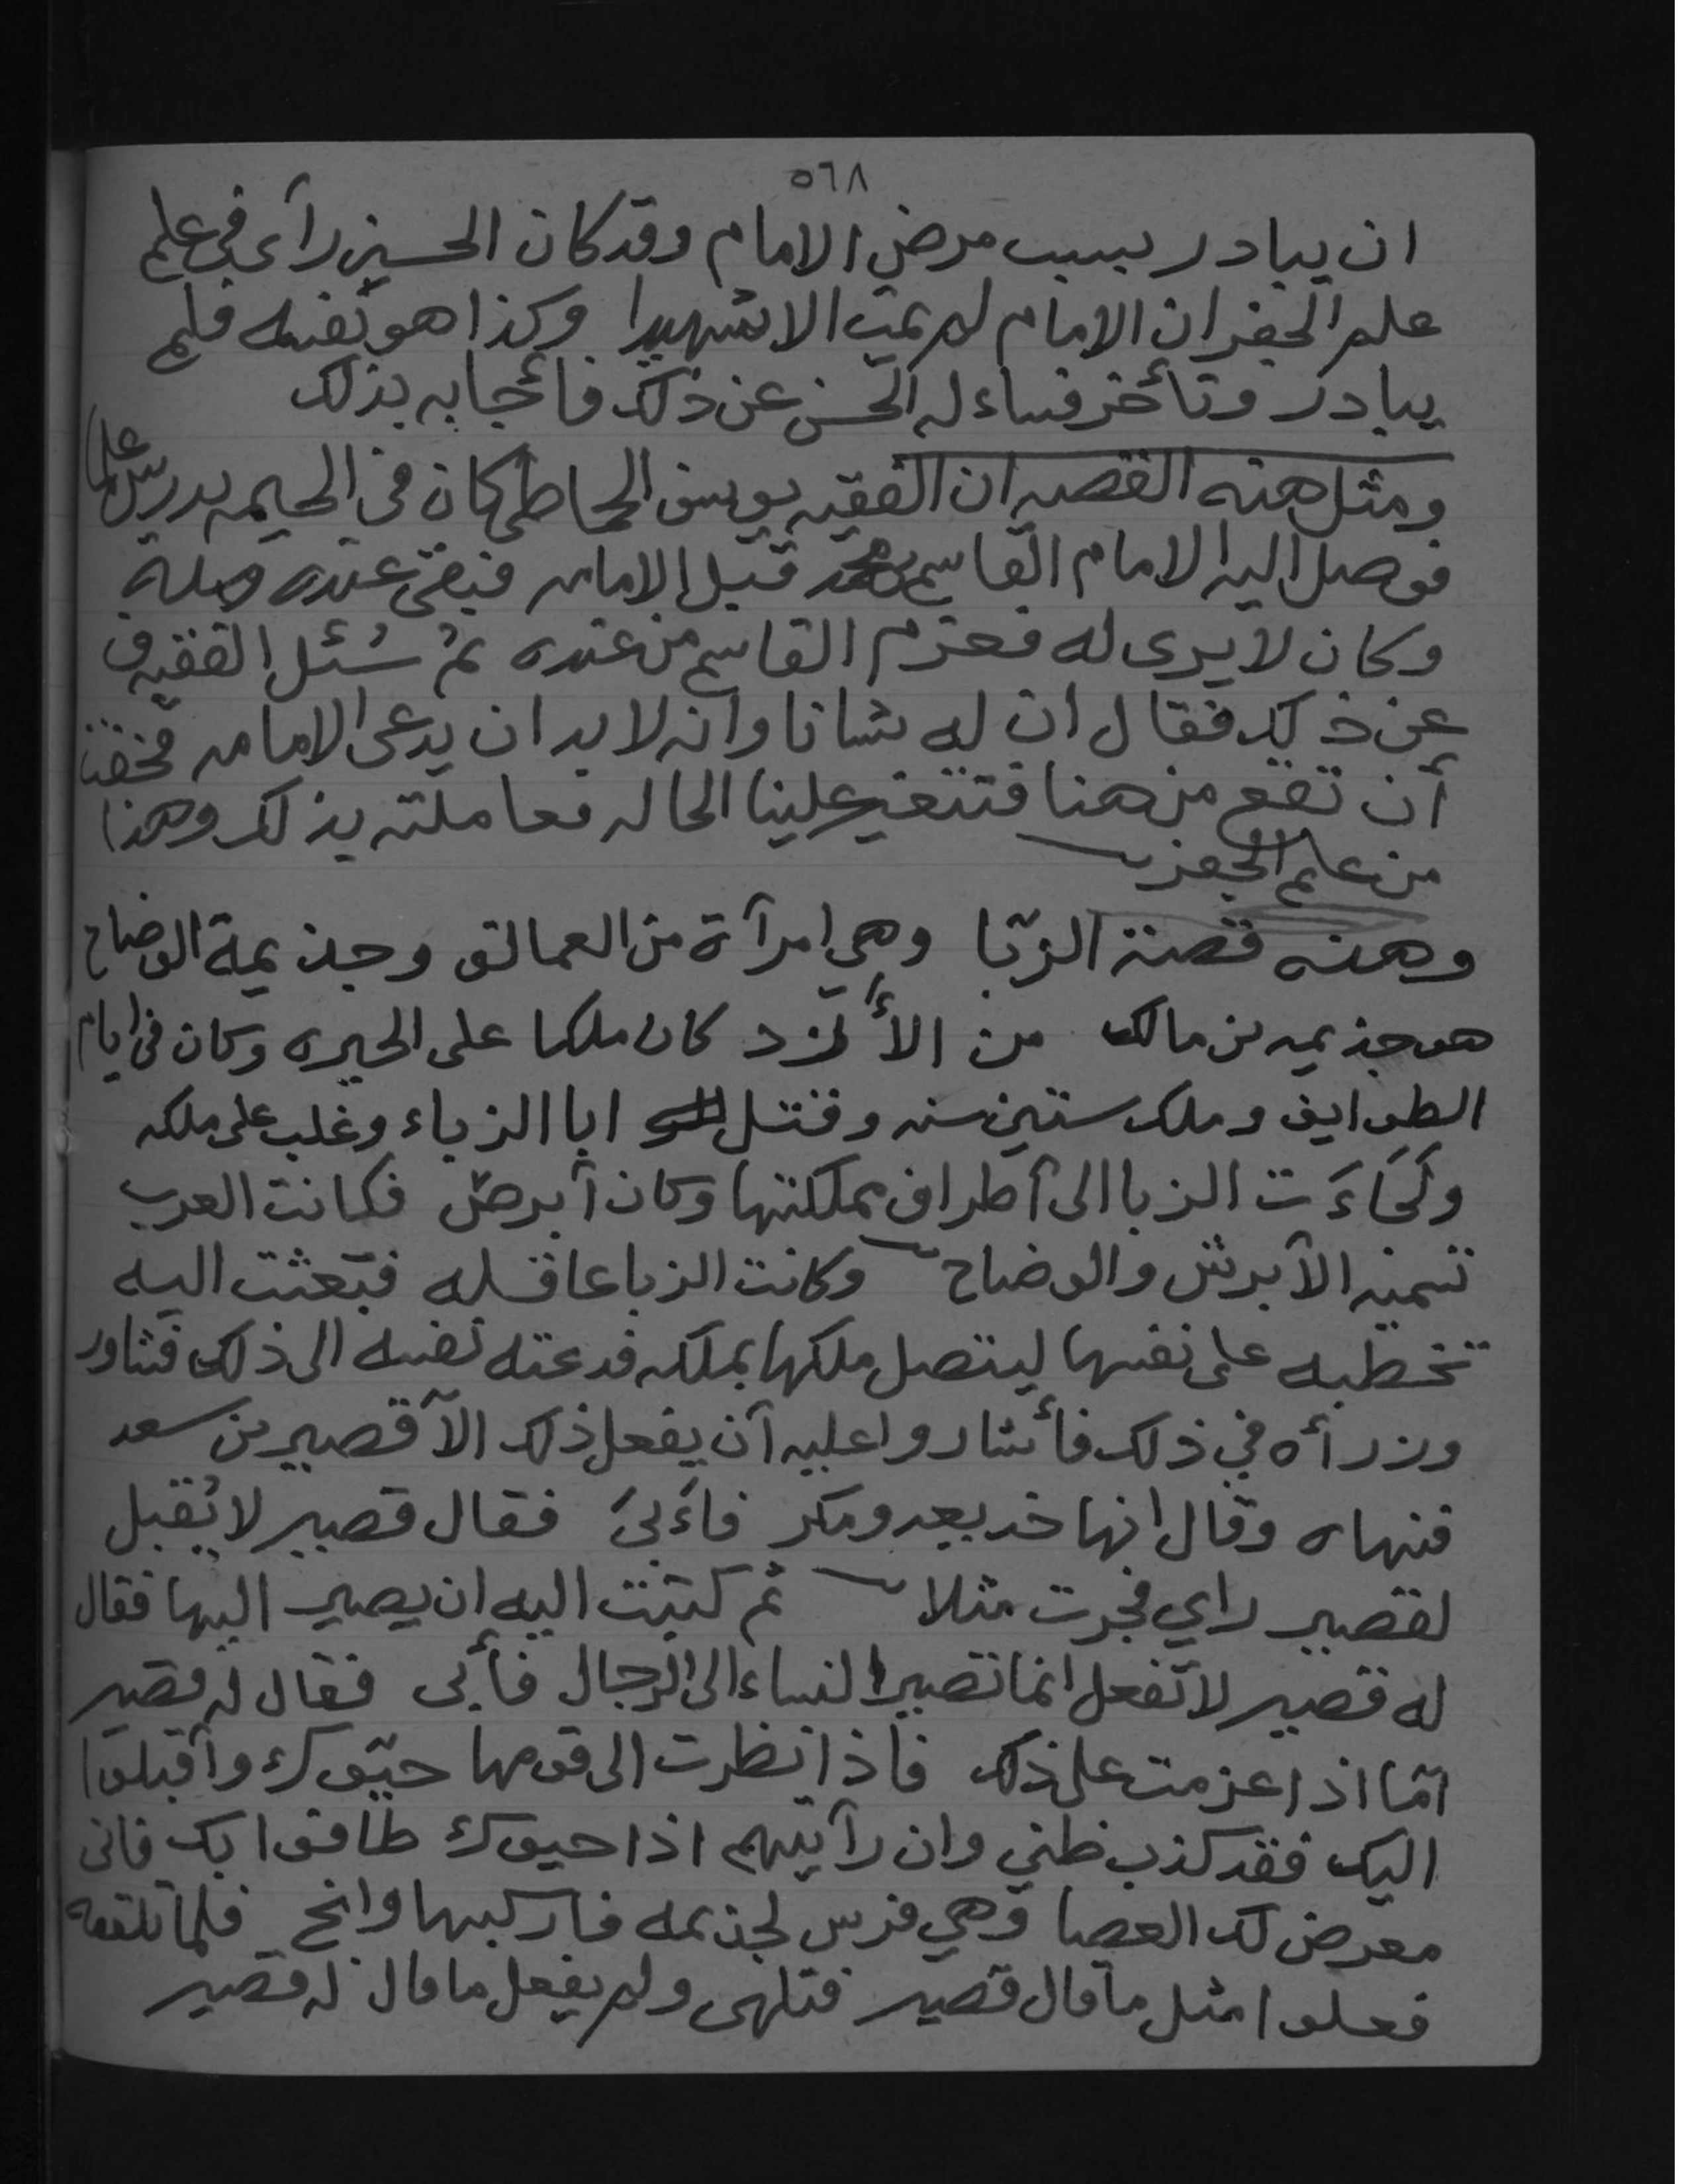 ٥٦٨
ان يبادر بسبب مرض الامام وقد كان الحسين رآى في علم
علم الجفر ان الامام لم يمت الا شهيدا وكذا هو نفسه فلم
يبادر وتأخر فساءله الحسن عن ذلك فأجابه بذلك
ومثل هذه القصه ان الفقيه يوسف الحماطي كان في الحيمه يدرس علما
فوصل اليه الامام القاسم بن محمد قبل الامامه فبقى عنده
وكان لا يرى له فعزم القاسم من عنده ثم سُئل الفقيه
عن ذلك فقال ان له شانا وانه لا بد ان يدعى الامامه فخفنا
أن تقع من هنا فتتغير علينا الحاله فعاملته بذلك وهذا
من علم الجفر
وهذه قصة الزبّا وهي امرآة من العمالق وجذيمة الوضاح
هو جذيمه بن مالك من الأزد كان ملكا على الحيره وكان في ايام
الطوايف وملك ستين سنه وقتل ابا الزباء وغلب على ملكه
ولجاءَت الزبا الى آطراف مملكتها وكان آبرص فكانت العرب
تسميه الآبرش والوضاح وكانت الزبا عاقله فبعثت اليه
تخطبه على نفسها ليتصل ملكها بملكه فدعته نفسه الى ذلك فشاور
وزرأه في ذلك فأشاروا عليه آن يفعل ذلك الآ قصير بن سعد
فنهاه وقال انها خديعه ومكر فاءَبىَ فقال قصير لا يُقبل
لقصير راي فجرت مثلا ثم كتبت اليه ان يصير اليها فقال
له قصير لا تفعل انما تصير النساء الى الرجال فأبى فقال له قصير
امّا اذا عزمت على ذلك فاذا نظرت الى قومها حيّوك وآقبلوا
اليك فقد كذب ظني وان رآيتهم اذا حيوك طافوا بك فانى
معرض لك العصا وهي فرس لجذيمه فاركبها وانج فلما تلقعه
فعلوا مثل ما قال قصير فتلهى ولم يفعل ما قال له قصير